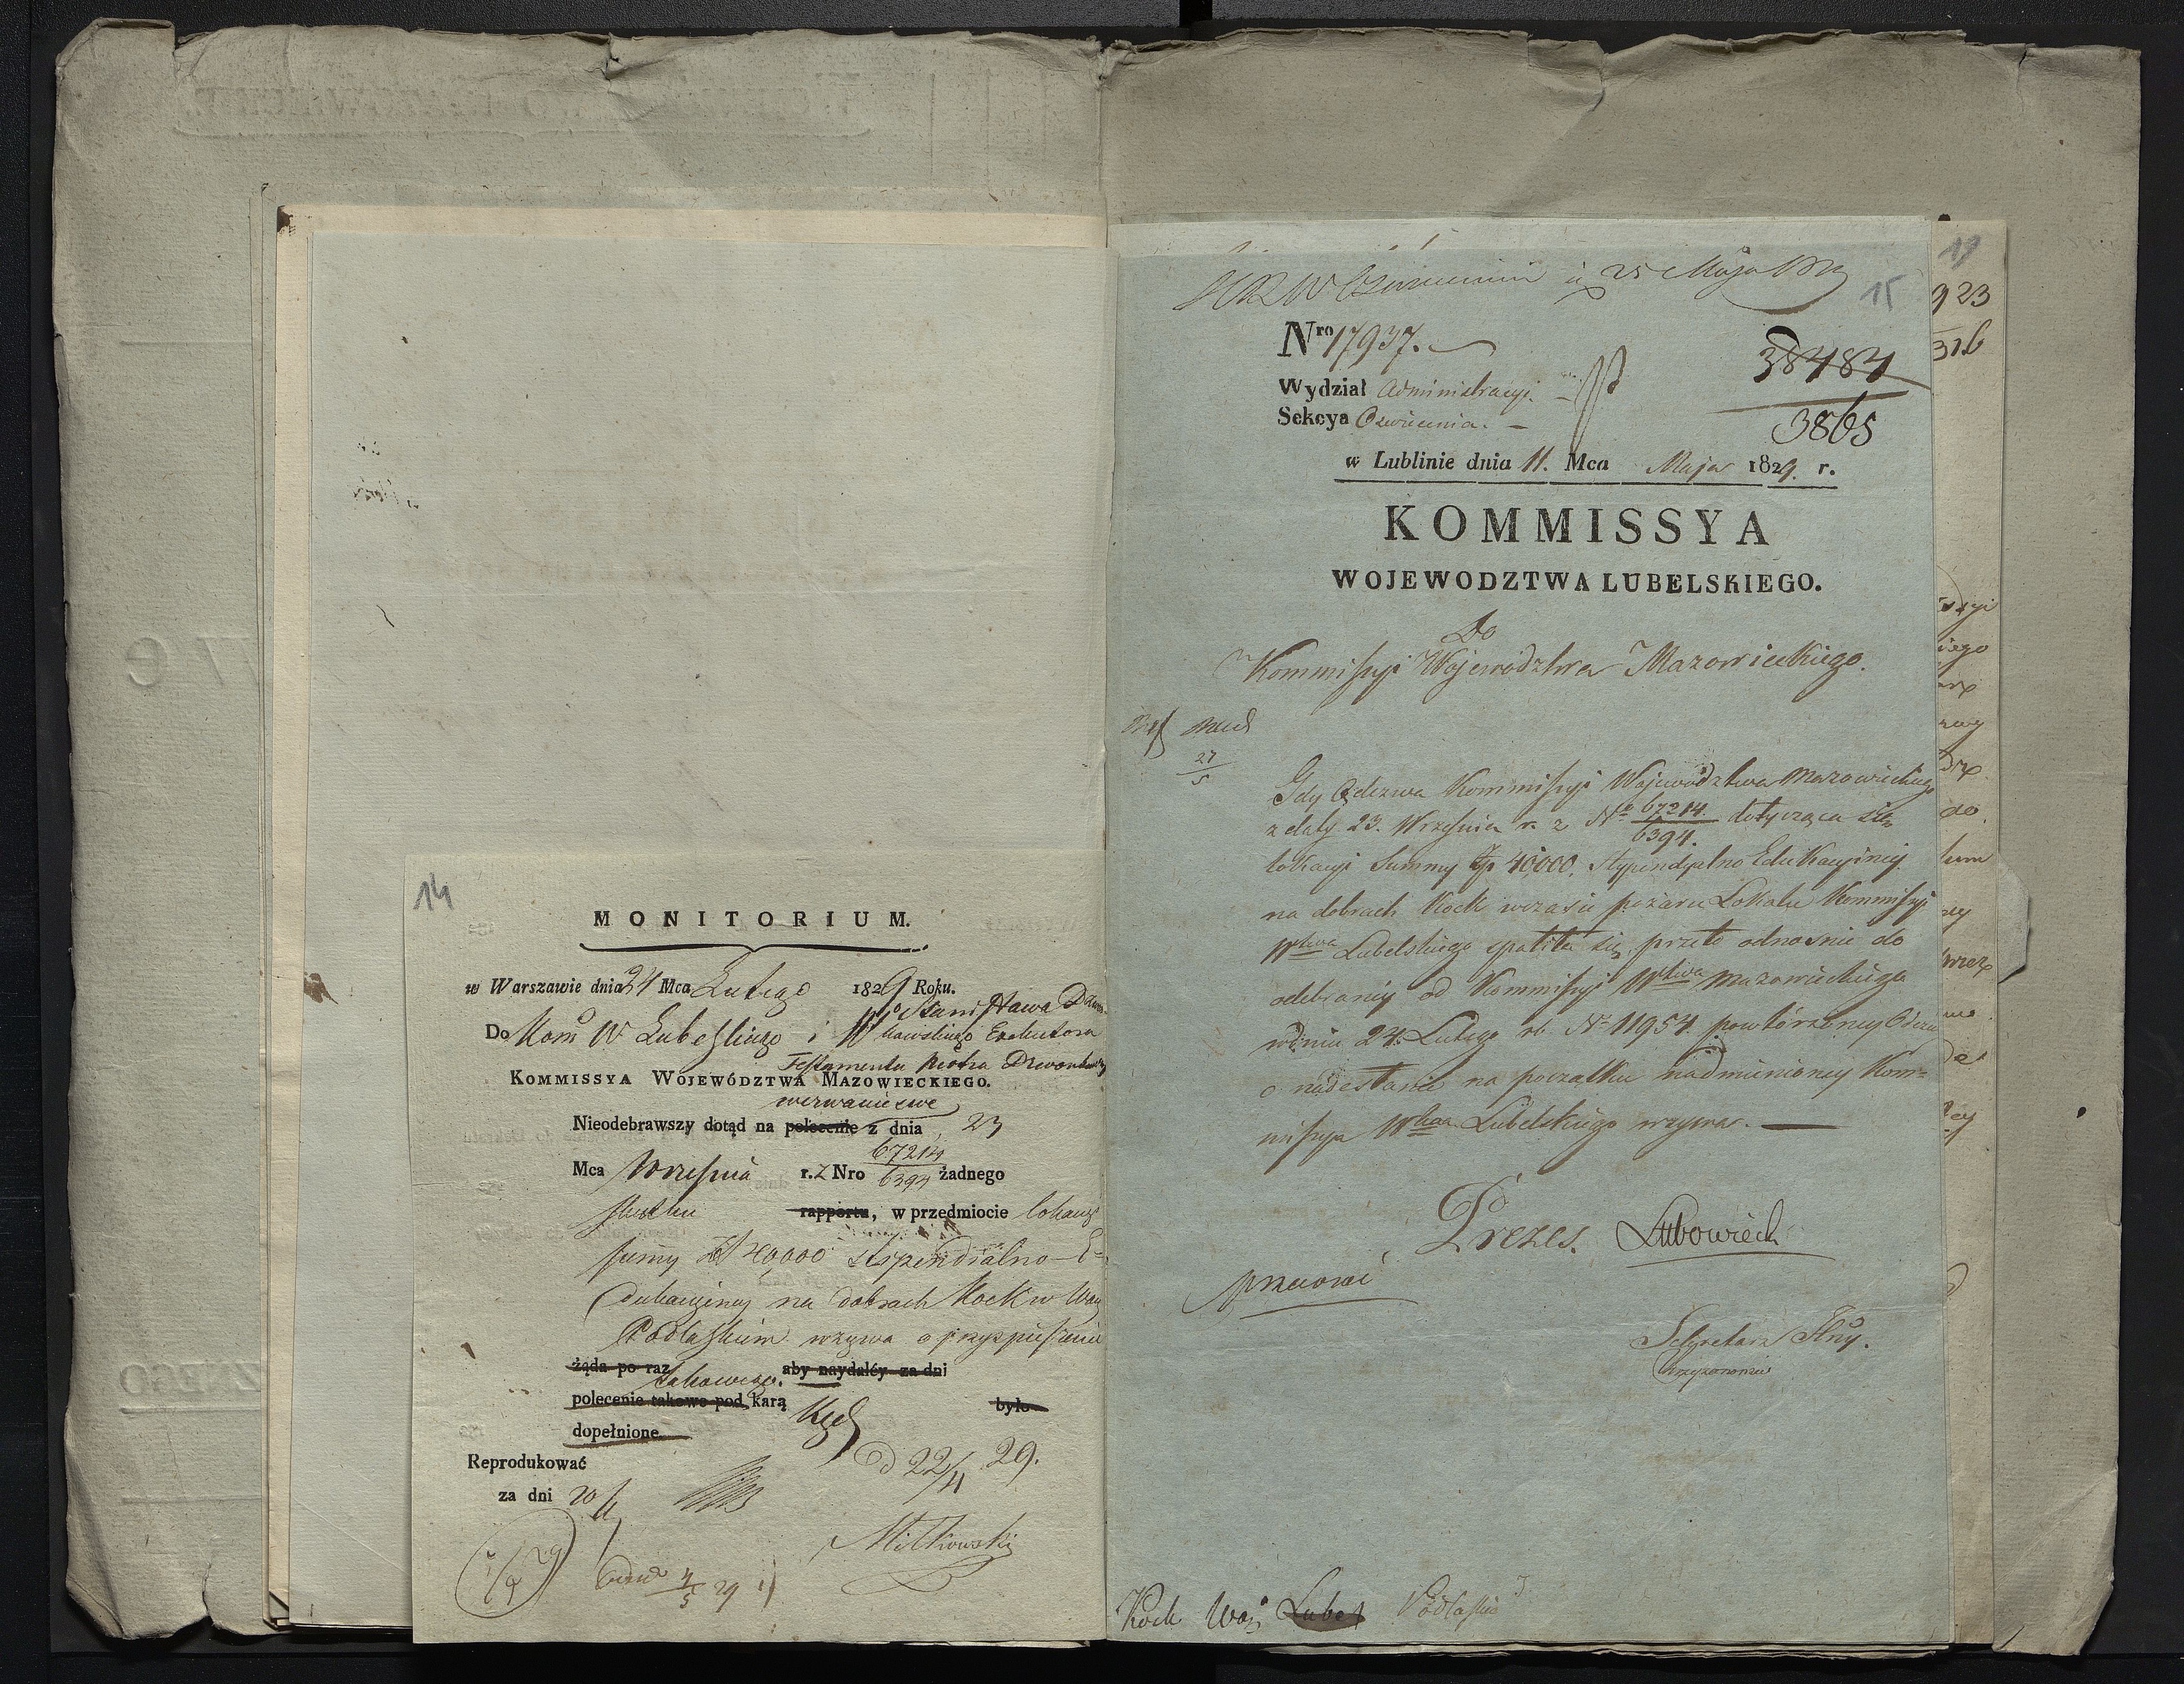 14
MONITORIUM.
w Warszawie dnia 24 Mca Lutego 1829 Roku.
Do Kom W Lubelskiego i W Stanisława
Exekutora
Testamentu Piotra
KOMMISSYA WOJEWÓDZTWA MAZOWIECKIEGO.
wezwanie swe
Nieodebrawszy dotąd na polecenie z dnia 23
Mca Września r. z Nro 67214/6394 żadnego
skutku rapportu, w przedmiocie lokacyi
summy Zł 40,000 stypendialno-E-
dukacyiney na dobrach Kock w Woj
Podlaskiem wzywa o przyspieszenie
żąda po raz takowego. aby naydaléy za dni
polecenie takowe pod karą było
dopełnione.
Reprodukować
za dni 20
22/4 29.
Mitkowski
4/5 29
15
25 Maja
Nro 17937.
Wydział Administracyi.
Sekcya Oswiecenia.
38484
3865
w Lublinie dnia 11. Mca Maja 1829. r.
KOMMISSYA
WOJEWODZTWA LUBELSKIEGO.
Do
Kommissyi Województwa Mazowieckiego.
27/5
Gdy Odezwa Kommissyi Województwa Mazowieckiego
z daty 23. Września r. z No 67214/6394. dotycząca się
lokacyi Summy Zp 40,000. Stypendyalno Edukacyiney
na dobrach Kock wczasie pożaru Lokalu Kommissyi
Wtwa Lubelskiego spaliła się, przeto odnośnie do
odebraney od Kommissyi Wtwa Mazowieckiego
wdniu 24. Lutego rb. No 11954. powtórzoney Odezwy
o nadesłanie na początku nadmienioney Kom=
missya Wtwa Lubelskiego wzywa.
Prezes. Lubowiecki
Sekretarz Jlny.
Kock Woj Lubel Podlaskie
19
923
316